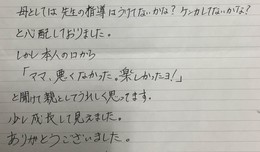 母としては先生の指導はうけてないかな?ケンカしてないかな?
と心配しておりました。
しかし本人の口から
「ママ、悪くなかった。楽しかったヨ!」
と聞けて親としてうれしく思ってます。
少し成長して見えました。
ありがとうございました。